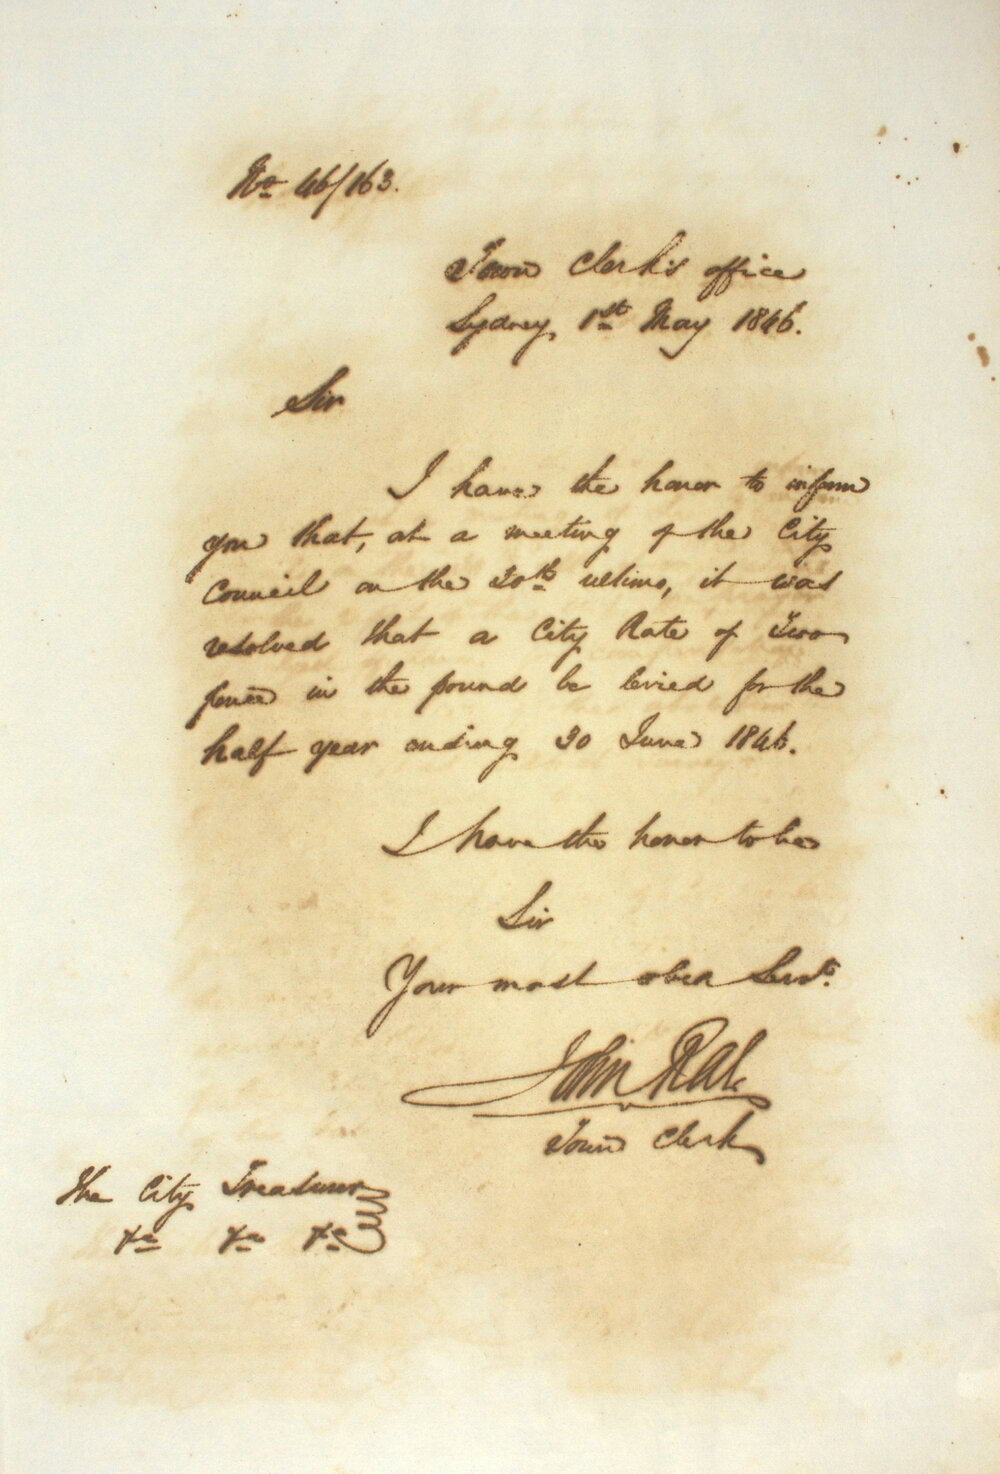 No 46/163.
Town Clerk's office
Sydney, 1st May 1846.
Sir
I have the honor to inform
you that, at a meeting of the City
Council on the 30th ultimo, it was
resolved that a City Rate of Two
pence in the pound be levied for the
half year ending 30 June 1846.
I have the honor to be
Sir
Your most obed Servt.
John Rae
Town Clerk
The City Treasurer
&c &c &c